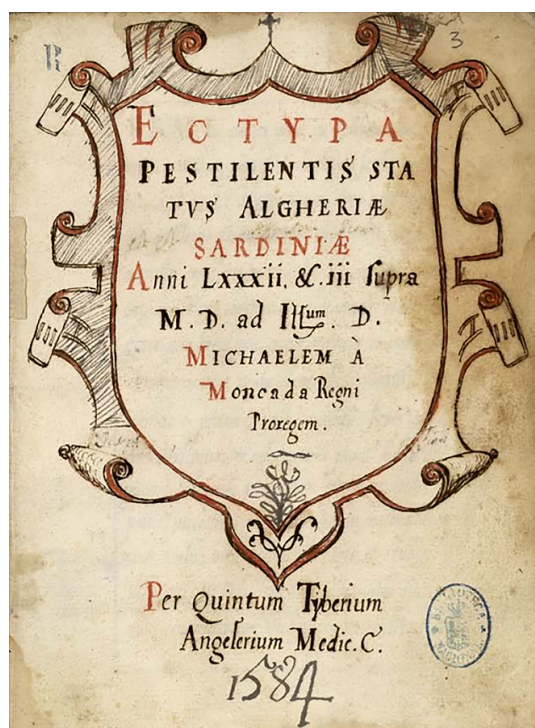 R
3
ECTYPA
PESTILENTIS STA
TVS ALGHERIÆ
SARDINIÆ
Anni Lxxxii. &. iii supra
M. D. ad Illum. D.
MICHAELEM À
Moncada Regni
Proregem.
Per Quintum Tyberium
Angelerium Medic. C.
1584